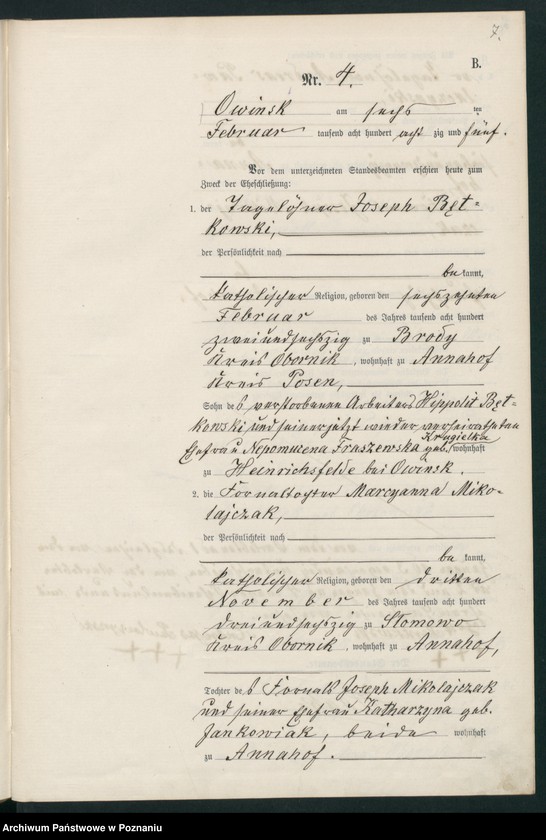 7.
B.
Nr. 4.
Owinsk am sechs ten
Februar tausend acht hundert acht zig und fünf.
Vor dem unterzeichneten Standesbeamten erschien heute zum
Zweck der Eheschließung:
1. der Tagelöhner Joseph Bęt-
kowski,
der Persönlichkeit nach
be kannt,
katholischer Religion, geboren den sechszehnten
Februar des Jahres tausend acht hundert
zweiundsechszig zu Brody
Kreis Obornik, wohnhaft zu Annahof
Kreis Posen,
Sohn des verstorbenen Arbeiters Hippolit Bęt-
kowski und seiner jetzt wieder verheiratheten
Krugielka
Ehefrau Nepomucena Fraszewska geb. wohnhaft
zu Heinrichsfelde bei Owinsk.
2. die Fornaltochter Marcyanna Miko-
lajczak,
der Persönlichkeit nach
be kannt,
katholischer Religion, geboren den dritten
November des Jahres tausend acht hundert
dreiundsechszig zu Slomowo
Kreis Obornik, wohnhaft zu Annahof,
Tochter des Fornals Joseph Mikolajczak
und seiner Ehefrau Katharzyna geb.
Jankowiak, beide wohnhaft
zu Annahof.
Archiwum Państwowe w Poznaniu